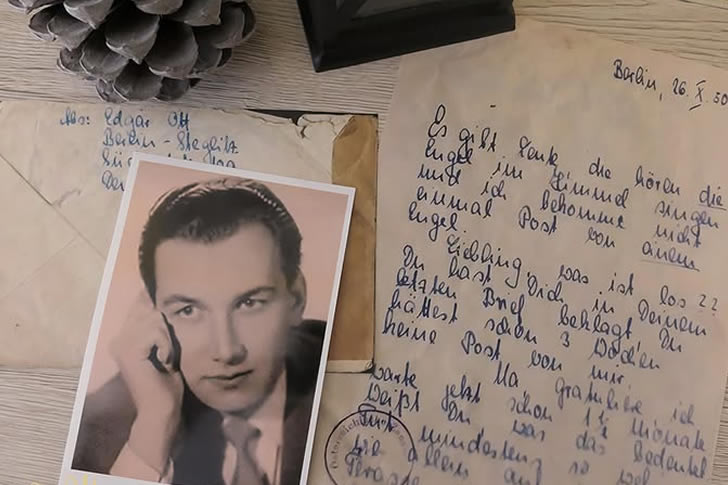 Abs: Edgar Ott
Berlin - Steglitz
Berlin, 26. X. 50
Es gibt Leute die hören die
Engel im Himmel singen
und ich bekomme nicht
einmal Post von einem
Engel.
Liebling was ist los??
Du hast Dich in Deinem
letzten Brief beklagt, Du
hättest schon 3 Wochen
keine Post von mir.
Na gratuliere ich
warte jetzt schon 1½ Monate
Weißt Du was das bedeutet
mindestens so viel
wie allein auf